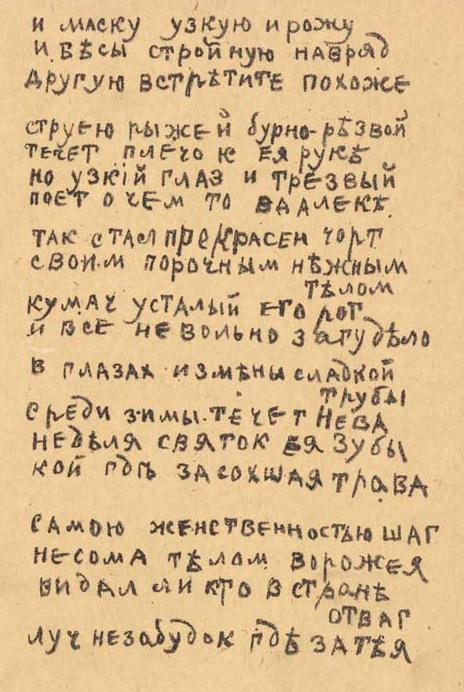 и маску узкую и рожу
и вѣсы стройную навряд
другую встрѣтите похоже
струею рыжей бурно-рѣзвой
течет плечо к ея рукѣ
но узкій глаз и трезвый
поет о чем то вдалекѣ.
так стал прекрасен чорт
своим порочным нѣжным
тѣлом
кумач усталый его рот
и все невольно загудѣло
в глазах измѣны сладкой
трубы
среди зимы течет Нева
недѣля святок ея зубы
кой гдѣ засохшая трава
самою женственностью шаг
несома тѣлом ворожея
видал ли кто в странѣ
отваг
луч незабудок гдѣ затѣя